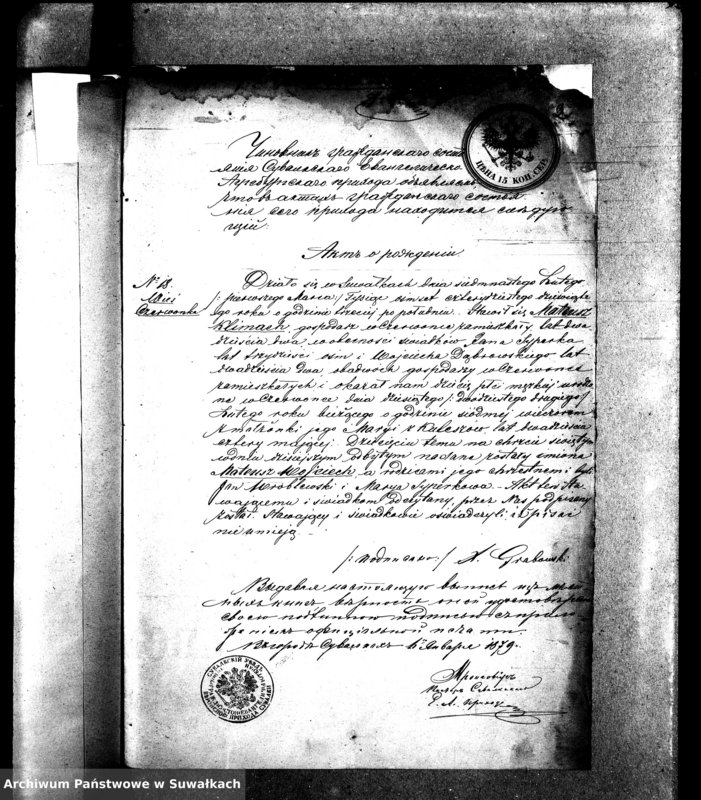 Чиновникъ гражданскаго состо
янія Сувалкскаго Евангелическо
Аугсбургскаго прихода объявляетъ,
что въ актахъ гражданскаго состоя
нія сего прихода находится слѣдую
щій:
ЦѢНА 15 КОП. СЕР.
Актъ о рожденіи
N 13.
Wieś
Czerwonka
Działo się w Suwałkach dnia siedmnastego Lutego
/: pierwszego Marca :/ Tysiąc ośmset czterdziestego dziewiąte
go roku o godzinie trzeciej po południu. Stawił się Mateusz
Klimach, gospodarz w Czerwonce zamieszkały lat dwa
dzieścia dwa, w obecności świadków Jana Syperka
lat trzydzieści ośm i Wojciecha Dąbrowskiego lat
dwadzieścia dwa obudwóch gospodarzy w Czerwonce
zamieszkałych i okazał nam dziecię płci męzkiej urodzo
ne w Czerwonce dnia dziesiątego /: dwudziestego drugiego :/
Lutego roku bieżącego o godzinie siódmej wieczorem
z małżonki jego Maryi z Kuleszów, lat dwadzieścia
cztery mającej. Dziecięciu temu na chrzcie świętym
w dniu dzisiejszym odbytym nadane zostały imiona
Mateusz Wojciech, a rodzicami jego chrzestnemi byli
Jan Wróblewski i Marya Syperkowa. Akt ten sta
wającemu i świadkom odczytany, przez Nas podpisany
został. Stawający i świadkowie oświadczyli, iż pisać
nie umieją.
/: подписано :/ A. Grabowski
Выдавая настоящую выпись изъ
книгъ, вѣрность оной удостовѣряю
своею подписью съ прило
женіемъ оффиціальной печати.
Въ городѣ Сувалкахъ Января 1879.
Archiwum Państwowe w Suwałkach